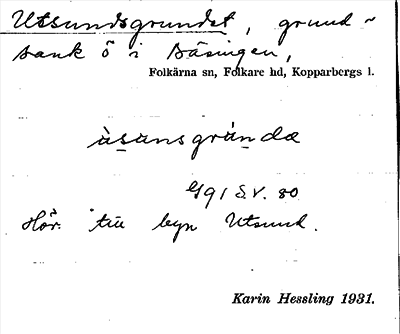 Utsundsgrundet, grund-
bank ö i Bäsingen,
Folkärna sn, Folkare hd, Kopparbergs l.
ùsùnsgrùndæ
G91 S.V. 80
Hör till byn Utsund.
Karin Hessling 1931.